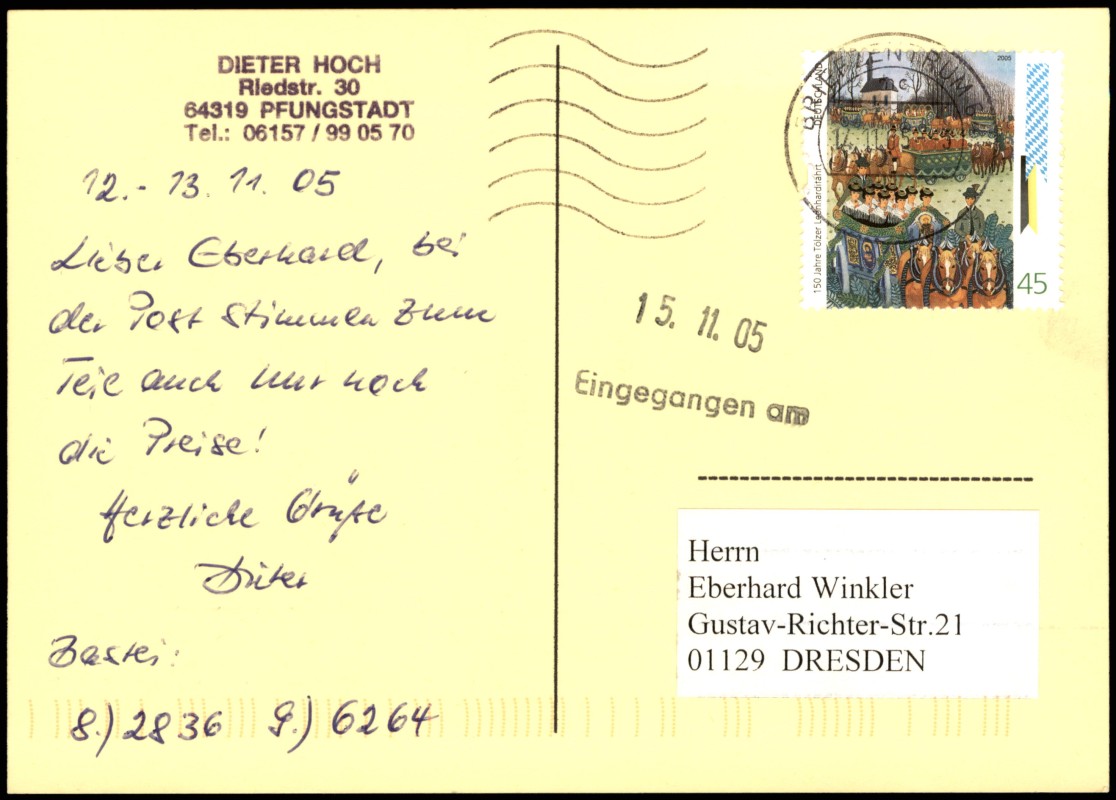 DIETER HOCH
Riedstr. 30
64319 PFUNGSTADT
Tel.: 06157 / 99 05 70
12.- 13. 11. 05
Lieber Eberhard, bei
der Post stimmen zum
Teil auch nur noch
die Preise!
Herzliche Grüße
Dieter
Bastei:
8.) 2836 9.) 6264
DEUTSCHLAND
2005
150 Jahre Tölzer Leonhardifahrt
45
15. 11. 05
Eingegangen am
Herrn
Eberhard Winkler
Gustav-Richter-Str.21
01129 DRESDEN